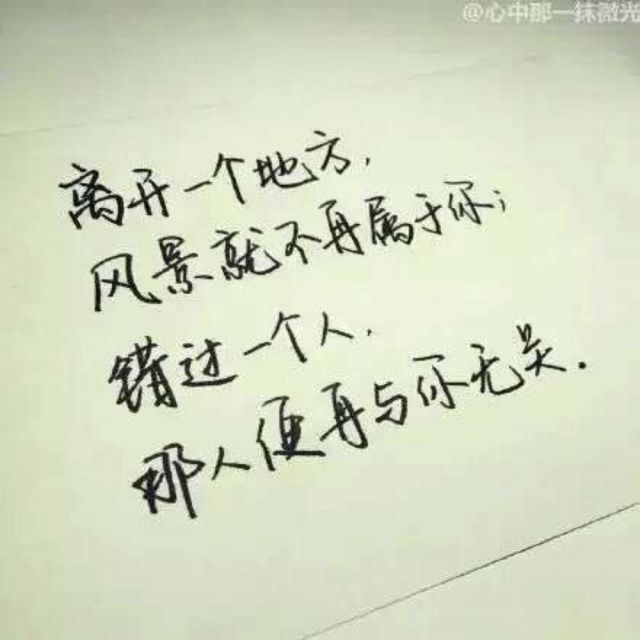 @心中那一抹微光
离开一个地方,
风景就不再属于你;
错过一个人,
那人便再与你无关.